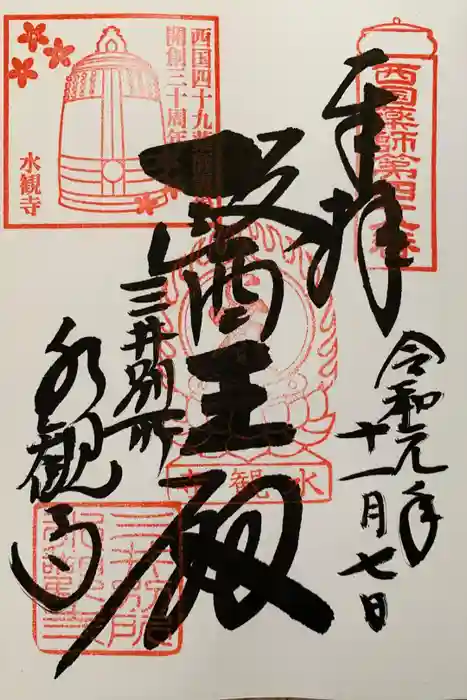 西国薬師第四十八番
奉拝
令和元年
十一月七日
西国四十九薬師霊場
開創三十周年
水観寺
醫王殿
水観寺
三井別所
水観寺
三井別所